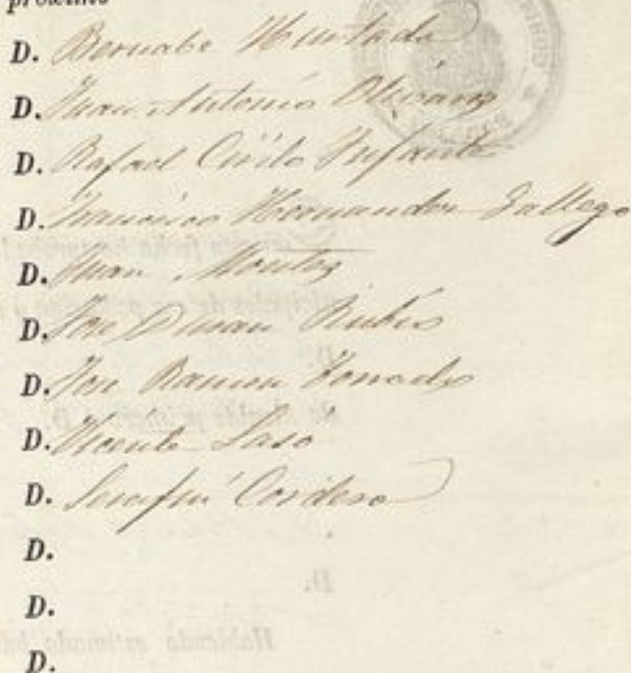 próximo
D. Bernabe Hurtado
D. Juan Antonio Olivares
D. Rafael Cirilo Infante
D. Francisco Hernandez Gallego
D. Juan Montes
D. Jose Duran Rubio
D. Jose Ramon
D. Vicente Laso
D. Serafin Cordero
D.
D.
D.